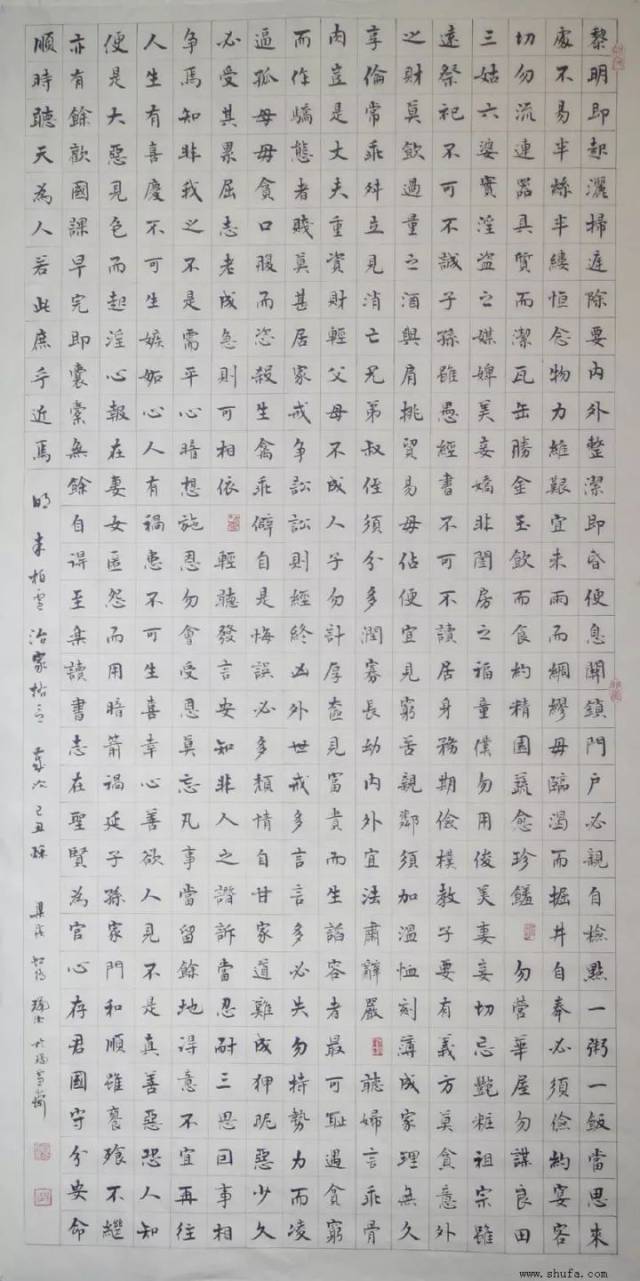 黎明即起灑掃庭除要內外整潔即昏便息關鎖門戶必親自檢點一粥一飯當思來
處不易半絲半縷恒念物力維艱宜未雨而綢繆毋臨渴而掘井自奉必須儉約宴客
切勿流連器具質而潔瓦缶勝金玉飲而食約精園蔬愈珍饈勿營華屋勿謀良田
三姑六婆實淫盜之媒婢美妾嬌非閨房之福童僕勿用俊美妻妾切忌艷粧祖宗雖
遠祭祀不可不誠子孫雖愚經書不可不讀居身務期儉樸教子要有義方莫貪意外
之財莫飲過量之酒與肩挑貿易毋佔便宜見窮苦親鄰須加溫恤刻薄成家理無久
享倫常乖舛立見消亡兄弟叔侄須分多潤寡長幼內外宜法肅辭嚴聽婦言乖骨
肉豈是丈夫重資財輕父母不成人子勿計厚奩見富貴而生諂容者最可恥遇貧窮
而作驕態者賤莫甚居家戒爭訟訟則經終凶外世戒多言言多必失勿恃勢力而凌
逼孤毋毋貪口服而恣殺生禽乖僻自是悔誤必多頹情自甘家道難成狎昵惡少久
必受其累屈志老成急則可相依輕聽發言安知非人之譖訴當忍耐三思因事相
爭焉知非我之不是需平心暗想施恩勿會受恩莫忘凡事當留餘地得意不宜再往
人生有喜慶不可生嫉妬心人有禍患不可生喜幸心善欲人見不是真善惡恐人知
便是大惡見色而起淫心報在妻女匿怨而用暗箭禍延子孫家門和順雖饔飧不繼
亦有餘歡國課早完即囊橐無餘自得至樂讀書志在聖賢為官心存君國守分安命
順時聽天為人若此庶乎近焉
明朱柏廬治家格言 歲次己丑
www.shufa.com